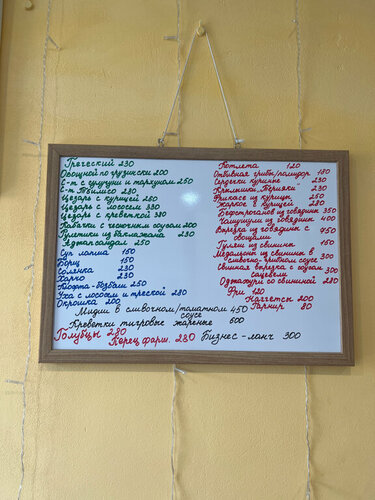 Греческий 230
Овощной по грузински 200
С-т с сулугуни и тархуном 250
С-т Тбилисо 280
Цезарь с курицей 280
Цезарь с лососем 380
Цезарь с креветкой 380
Кабачки с чесночным соусом 200
Рулетики из баклажана 230
Аджапсандал 250
Суп лапша 150
Борщ 150
Солянка 230
Харчо 230
Чашта-бозбаш 250
Уха с лососем и треской 280
Окрошка 200
Котлета 120
Отбивная грибы/помидор 180
Сердечки куриные 230
Крылышки "Терияки" 230
Фрикасе из курицы 250
Жаркое с курицей 280
Бефстроганов из говядины 350
Чашушули из говядины 400
Вырезка из говядины с 450
овощами
Гуляш из свинины 150
Медальоны из свинины в 300
сливочно-грибном соусе
Свиная вырезка с соусом 300
сацебели
Оджахури со свининой 280
Фри 120
Наггетсы 200
Гарнир 80
Мидии в сливочном/томатном 450
соусе
Креветки тигровые жареные 600
Голубцы 280
Перец фарш. 280 Бизнес-ланч 300